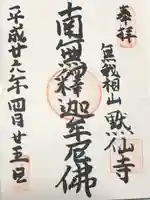 奉拝
無我相山 戦仙寺
南無釋迦牟尼佛
平成廿六年四月廿五日